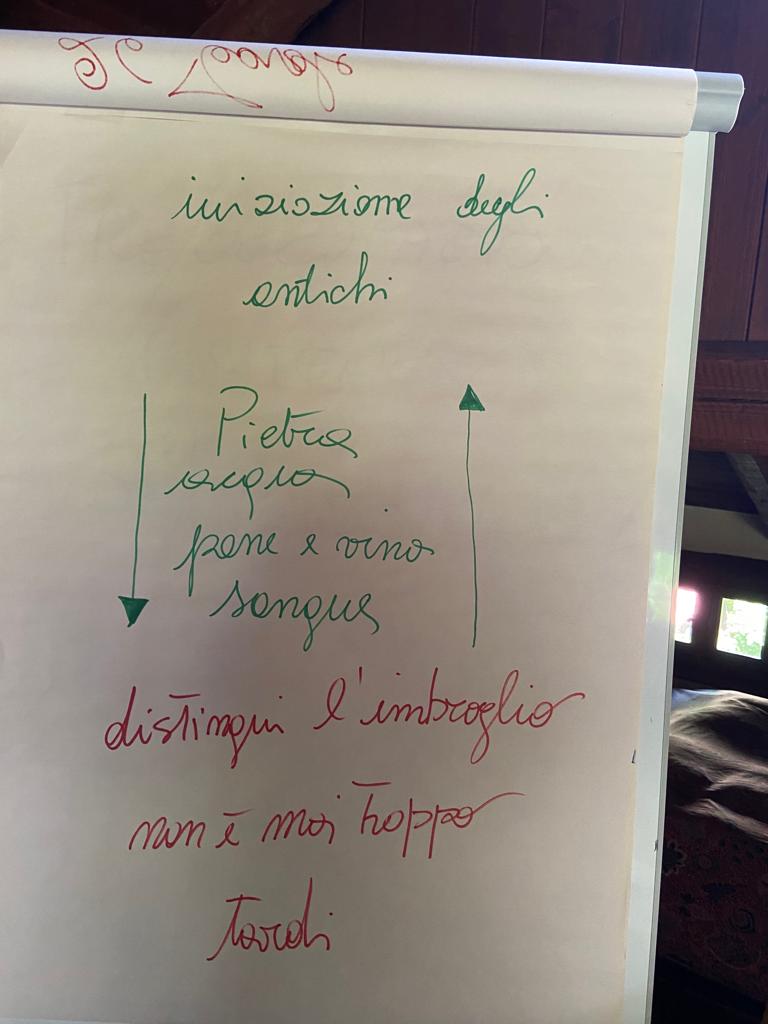 iniziazione degli
antichi
Pietra
acqua
pane e vino
sangue
distingui l'imbroglio
non è mai troppo
tardi